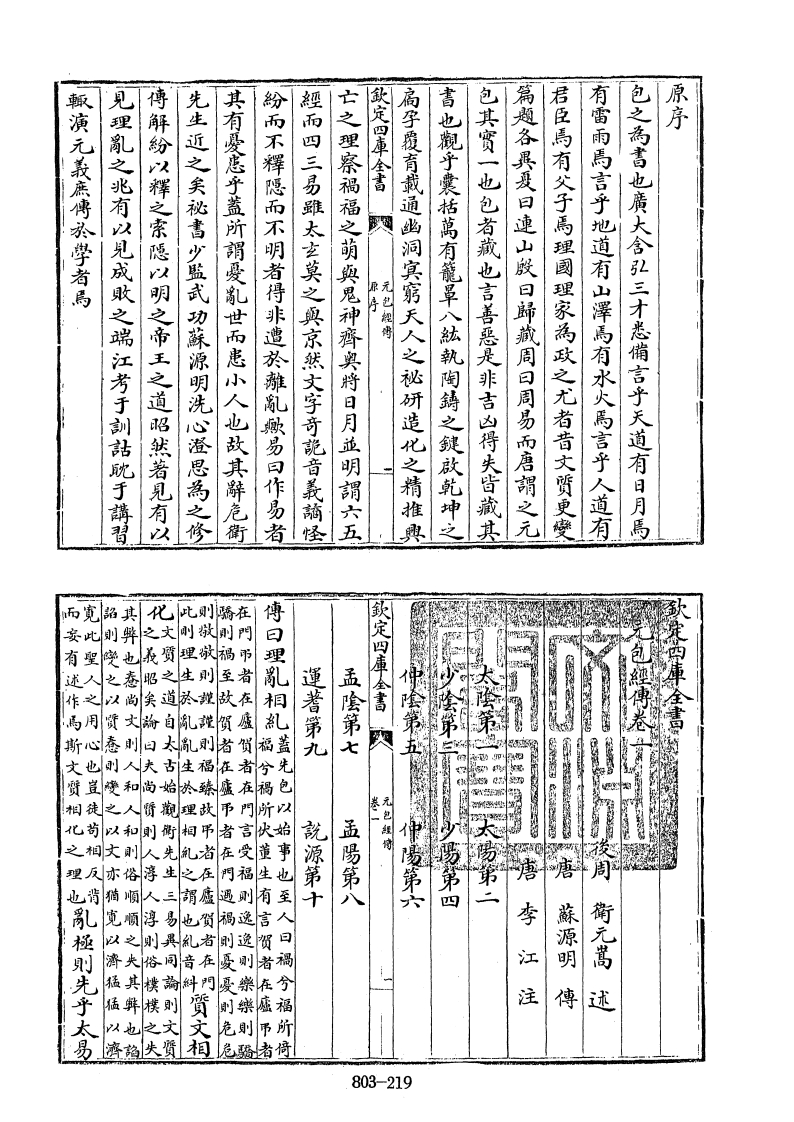 原序
包之為書也廣大含弘三才悉備言乎天道有日月焉
有雷雨焉言乎地道有山澤焉有水火焉言乎人道有
君臣焉有父子焉理國理家為政之尤者昔文質更變
篇題各異夏曰連山殷曰歸藏周曰周易而唐謂之元
包其實一也包者藏也言善惡是非吉凶得失皆藏其
書也觀乎囊括萬有籠罩八紘執陶鑄之鍵啟乾坤之
扃孕覆育載通幽洞冥窮天人之祕研造化之精推興
欽定四庫全書 元包經傳 原序 一
亡之理察禍福之萌與鬼神齊奧將日月並明謂六五
經而四三易雖太玄莫之與京然文字奇詭音義譎怪
紛而不釋隱而不明者得非遭於離亂歟易曰作易者
其有憂患乎蓋所謂憂亂世而患小人也故其辭危衛
先生近之矣祕書少監武功蘇源明洗心澄思為之修
傳解紛以釋之索隱以明之帝王之道昭然著見有以
見理亂之兆有以見成敗之端江考于訓詁耽于講習
輙演元義庶傳於學者焉
欽定四庫全書
元包經傳卷一
後周 衛元嵩 述
唐 蘇源明 傳
唐 李江 注
文淵閣寶
太陰第一 太陽第二
少陰第三 少陽第四
仲陰第五 仲陽第六
欽定四庫全書 元包經傳 卷一 一
孟陰第七 孟陽第八
運蓍第九 說源第十
傳曰理亂相糺
蓋先包以始事也至人曰禍兮福所倚
福兮禍所伏董生有言賀者在廬弔者
在門弔者在廬賀者在門言受福則逸逸則樂樂則驕
驕則禍至故賀者在廬弔者在門遇禍則憂憂則危危
則敬敬則謹謹則福臻故弔者在廬賀者在門
此則理生於亂亂生於理相糺之謂也糺音糾
質文相
化
文質之道自太古始觀衛先生三易異同論則文質
之義昭矣論曰夫尚質則人淳人淳則俗樸樸之失
其弊也惷尚文則人和人和則俗順順之失其弊也諂
諂則變之以質惷則變之以文亦猶寬以濟猛猛以濟
寬此聖人之用心也豈徒苟相反背
而妄有述作焉斯文質相化之理也
亂極則先乎太易
803-219